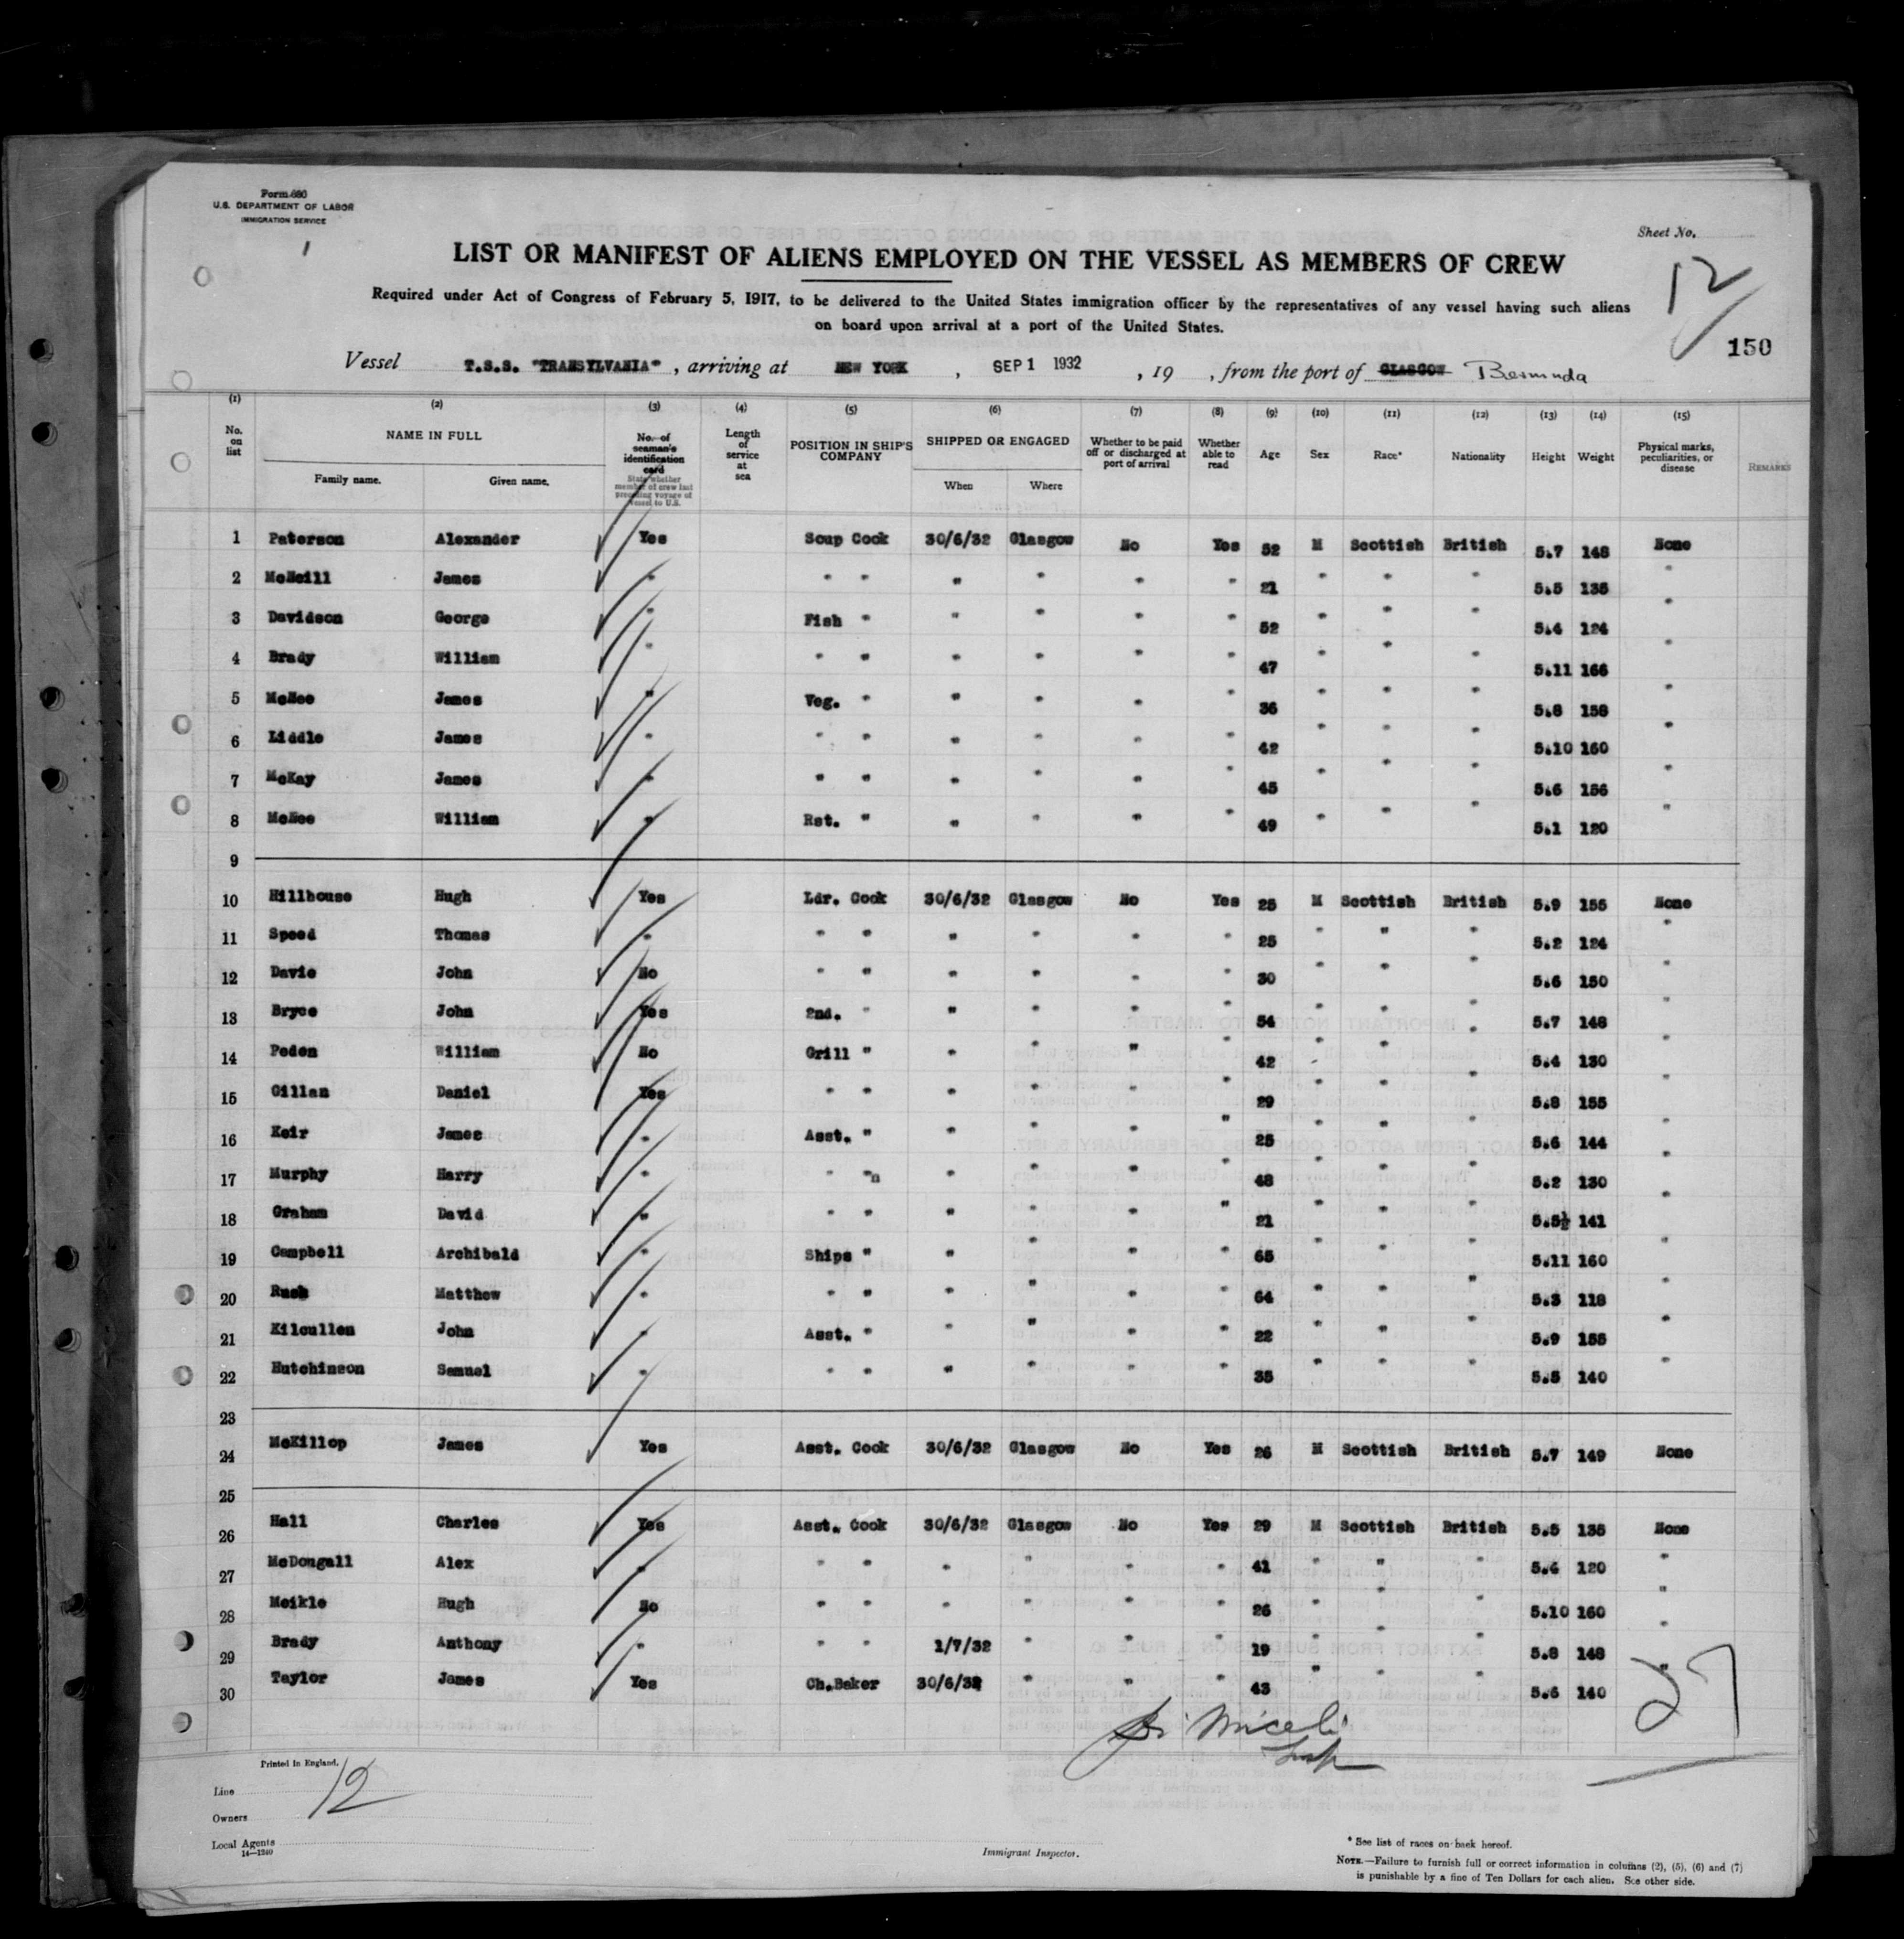 Form 680
U.S. DEPARTMENT OF LABOR
IMMIGRATION SERVICE
Sheet No.
12
150
LIST OR MANIFEST OF ALIENS EMPLOYED ON THE VESSEL AS MEMBERS OF CREW
Required under Act of Congress of February 5, 1917, to be delivered to the United States immigration officer by the representatives of any vessel having such aliens
on board upon arrival at a port of the United States.
Vessel T.S.S. "TRANSYLVANIA", arriving at NEW YORK, SEP 1 1932, 19 , from the port of GLASGOW Bermuda
(1) (2) (3) (4) (5) (6) (7) (8) (9) (10) (11) (12) (13) (14) (15)
No. on list
NAME IN FULL
Family name. Given name.
No. of seaman's identification card
State whether member of crew last preceding voyage of vessel to U.S.
Length of service at sea
POSITION IN SHIP'S COMPANY
SHIPPED OR ENGAGED
When Where
Whether to be paid off or discharged at port of arrival
Whether able to read
Age Sex Race* Nationality Height Weight
Physical marks, peculiarities, or disease
REMARKS
1 Paterson Alexander Yes Soup Cook 30/6/32 Glasgow No Yes 52 M Scottish British 5.7 148 None
2 McNeill James " " " " " " " 21 " " " 5.5 135 "
3 Davidson George " Fish " " " " " 52 " " " 5.4 124 "
4 Brady William " " " " " " " 47 " " " 5.11 166 "
5 McNee James " Veg. " " " " " 36 " " " 5.8 158 "
6 Liddle James " " " " " " " 42 " " " 5.10 160 "
7 McKay James " " " " " " " 45 " " " 5.6 156 "
8 McNee William " Rst. " " " " " 49 " " " 5.1 120 "
9
10 Hillhouse Hugh Yes Ldr. Cook 30/6/32 Glasgow No Yes 25 M Scottish British 5.9 155 None
11 Speed Thomas " " " " " " " 25 " " " 5.2 124 "
12 Davie John No " " " " " " 30 " " " 5.6 150 "
13 Bryce John Yes 2nd. " " " " " 54 " " " 5.7 148 "
14 Peden William No Grill " " " " " 42 " " " 5.4 130 "
15 Gillan Daniel Yes " " " " " " 29 " " " 5.8 155 "
16 Keir James " Asst. " " " " " 25 " " " 5.6 144 "
17 Murphy Harry " " "n " " " " 48 " " " 5.2 130 "
18 Graham David " " " " " " " 21 " " " 5.5½ 141 "
19 Campbell Archibald " Ships " " " " " 65 " " " 5.11 160 "
20 Rush Matthew " " " " " " " 64 " " " 5.3 118 "
21 Kilcullen John " Asst. " " " " " 22 " " " 5.9 155 "
22 Hutchinson Samuel " " " " " " " 35 " " " 5.5 140 "
23
24 McKillop James Yes Asst. Cook 30/6/32 Glasgow No Yes 26 M Scottish British 5.7 149 None
25
26 Hall Charles Yes Asst. Cook 30/6/32 Glasgow No Yes 29 M Scottish British 5.5 135 None
27 McDougall Alex " " " " " " " 41 " " " 5.4 120 "
28 Meikle Hugh No " " " " " " 26 " " " 5.10 160 "
29 Brady Anthony " " " 1/7/32 " " " 19 " " " 5.8 148 "
30 Taylor James Yes Ch.Baker 30/6/32 " " " 43 " " " 5.6 140 "
27
Miceli
Insp
Printed in England.
12
Line
Owners
Local Agents
14—1240
Immigrant Inspector.
* See list of races on back hereof.
NOTE.—Failure to furnish full or correct information in columns (2), (5), (6) and (7)
is punishable by a fine of Ten Dollars for each alien. See other side.